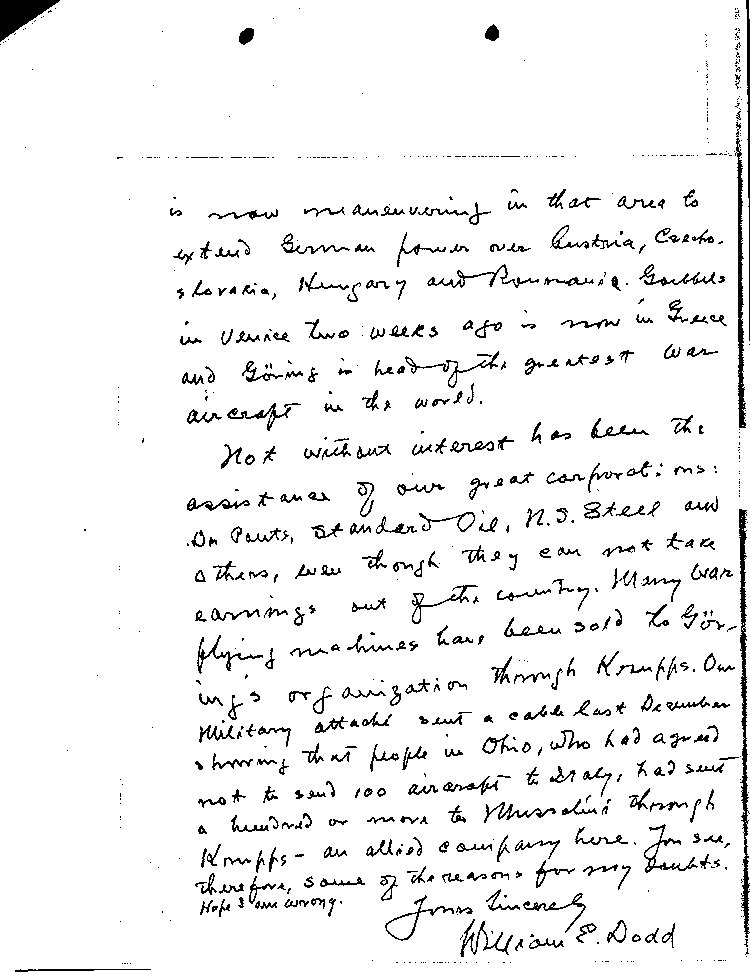 is now maneuvering in that area to
extend German power over Austria, Czecho-
slovakia, Hungary and Roumania. Goebbels
in Venice two weeks ago is now in Greece
and Göring is head of the greatest war
aircraft in the world.
Not without interest has been the
assistance of our great corporations:
Du Ponts, Standard Oil, U.S. Steel and
others, even though they can not take
earnings out of the country. Many war
flying machines have been sold to Gör-
ing's organization through Krupps. Our
Military attaché sent a cable last December
showing that people in Ohio, who had agreed
not to send 100 aircraft to Italy, had sent
a hundred or more to Mussolini through
Krupps - an allied company here. You see,
therefore, some of the reasons for my doubts.
Hope I am wrong.
Yours Sincerely
William E. Dodd